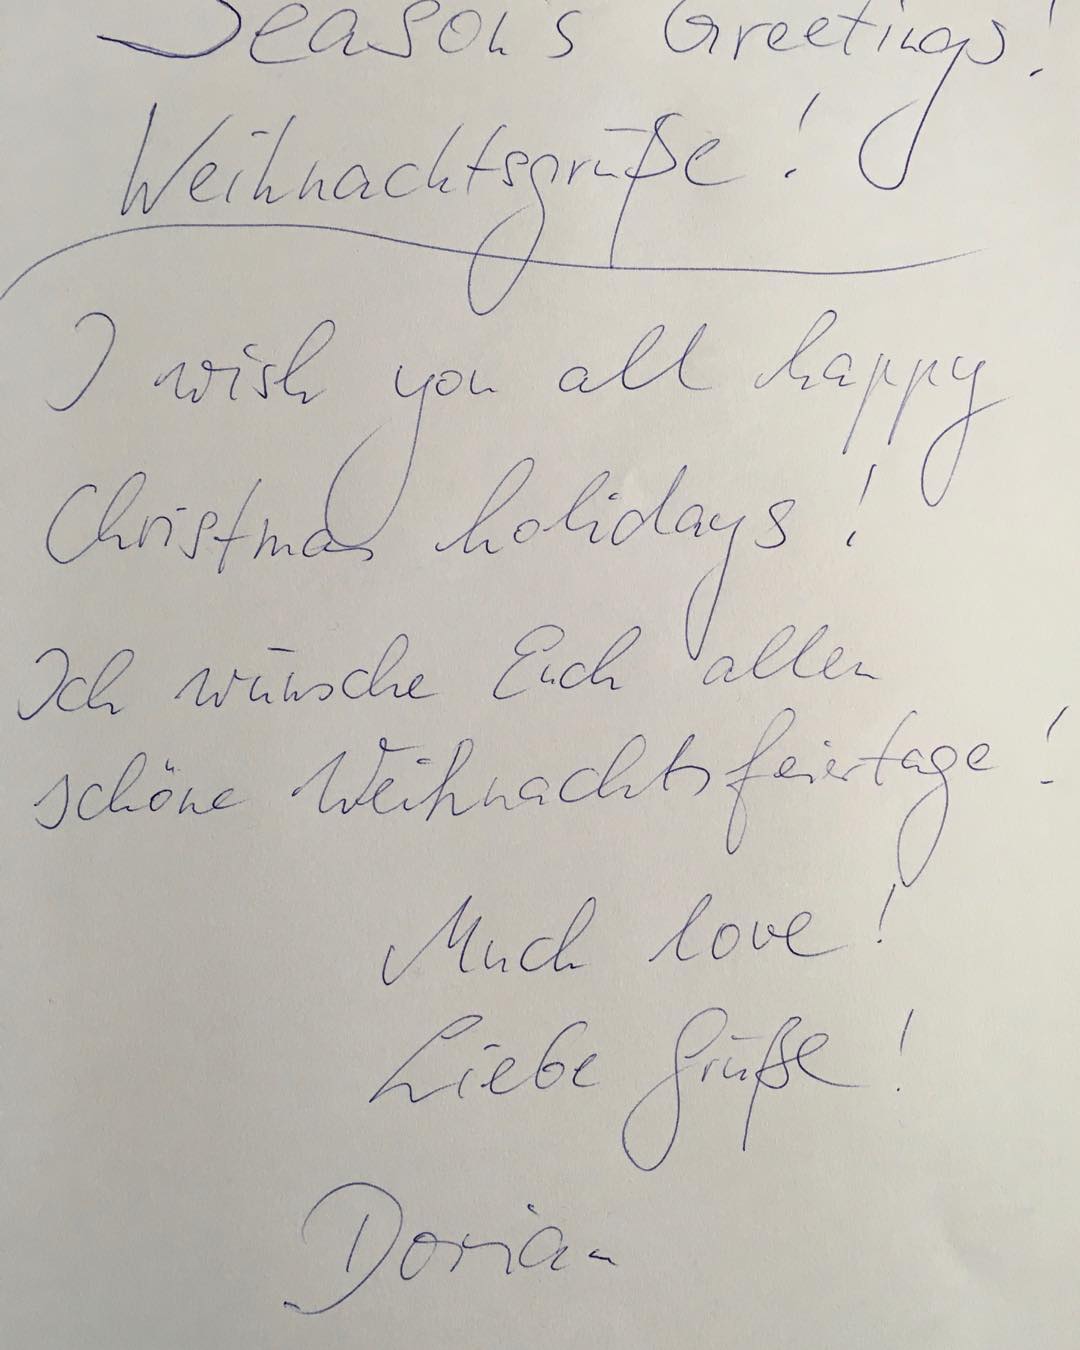 Season's Greetings!
Weihnachtsgrüße!
I wish you all happy
Christmas holidays!
Ich wünsche Euch allen
schöne Weihnachtsfeiertage!
Much love!
Liebe Grüße!
Dorian